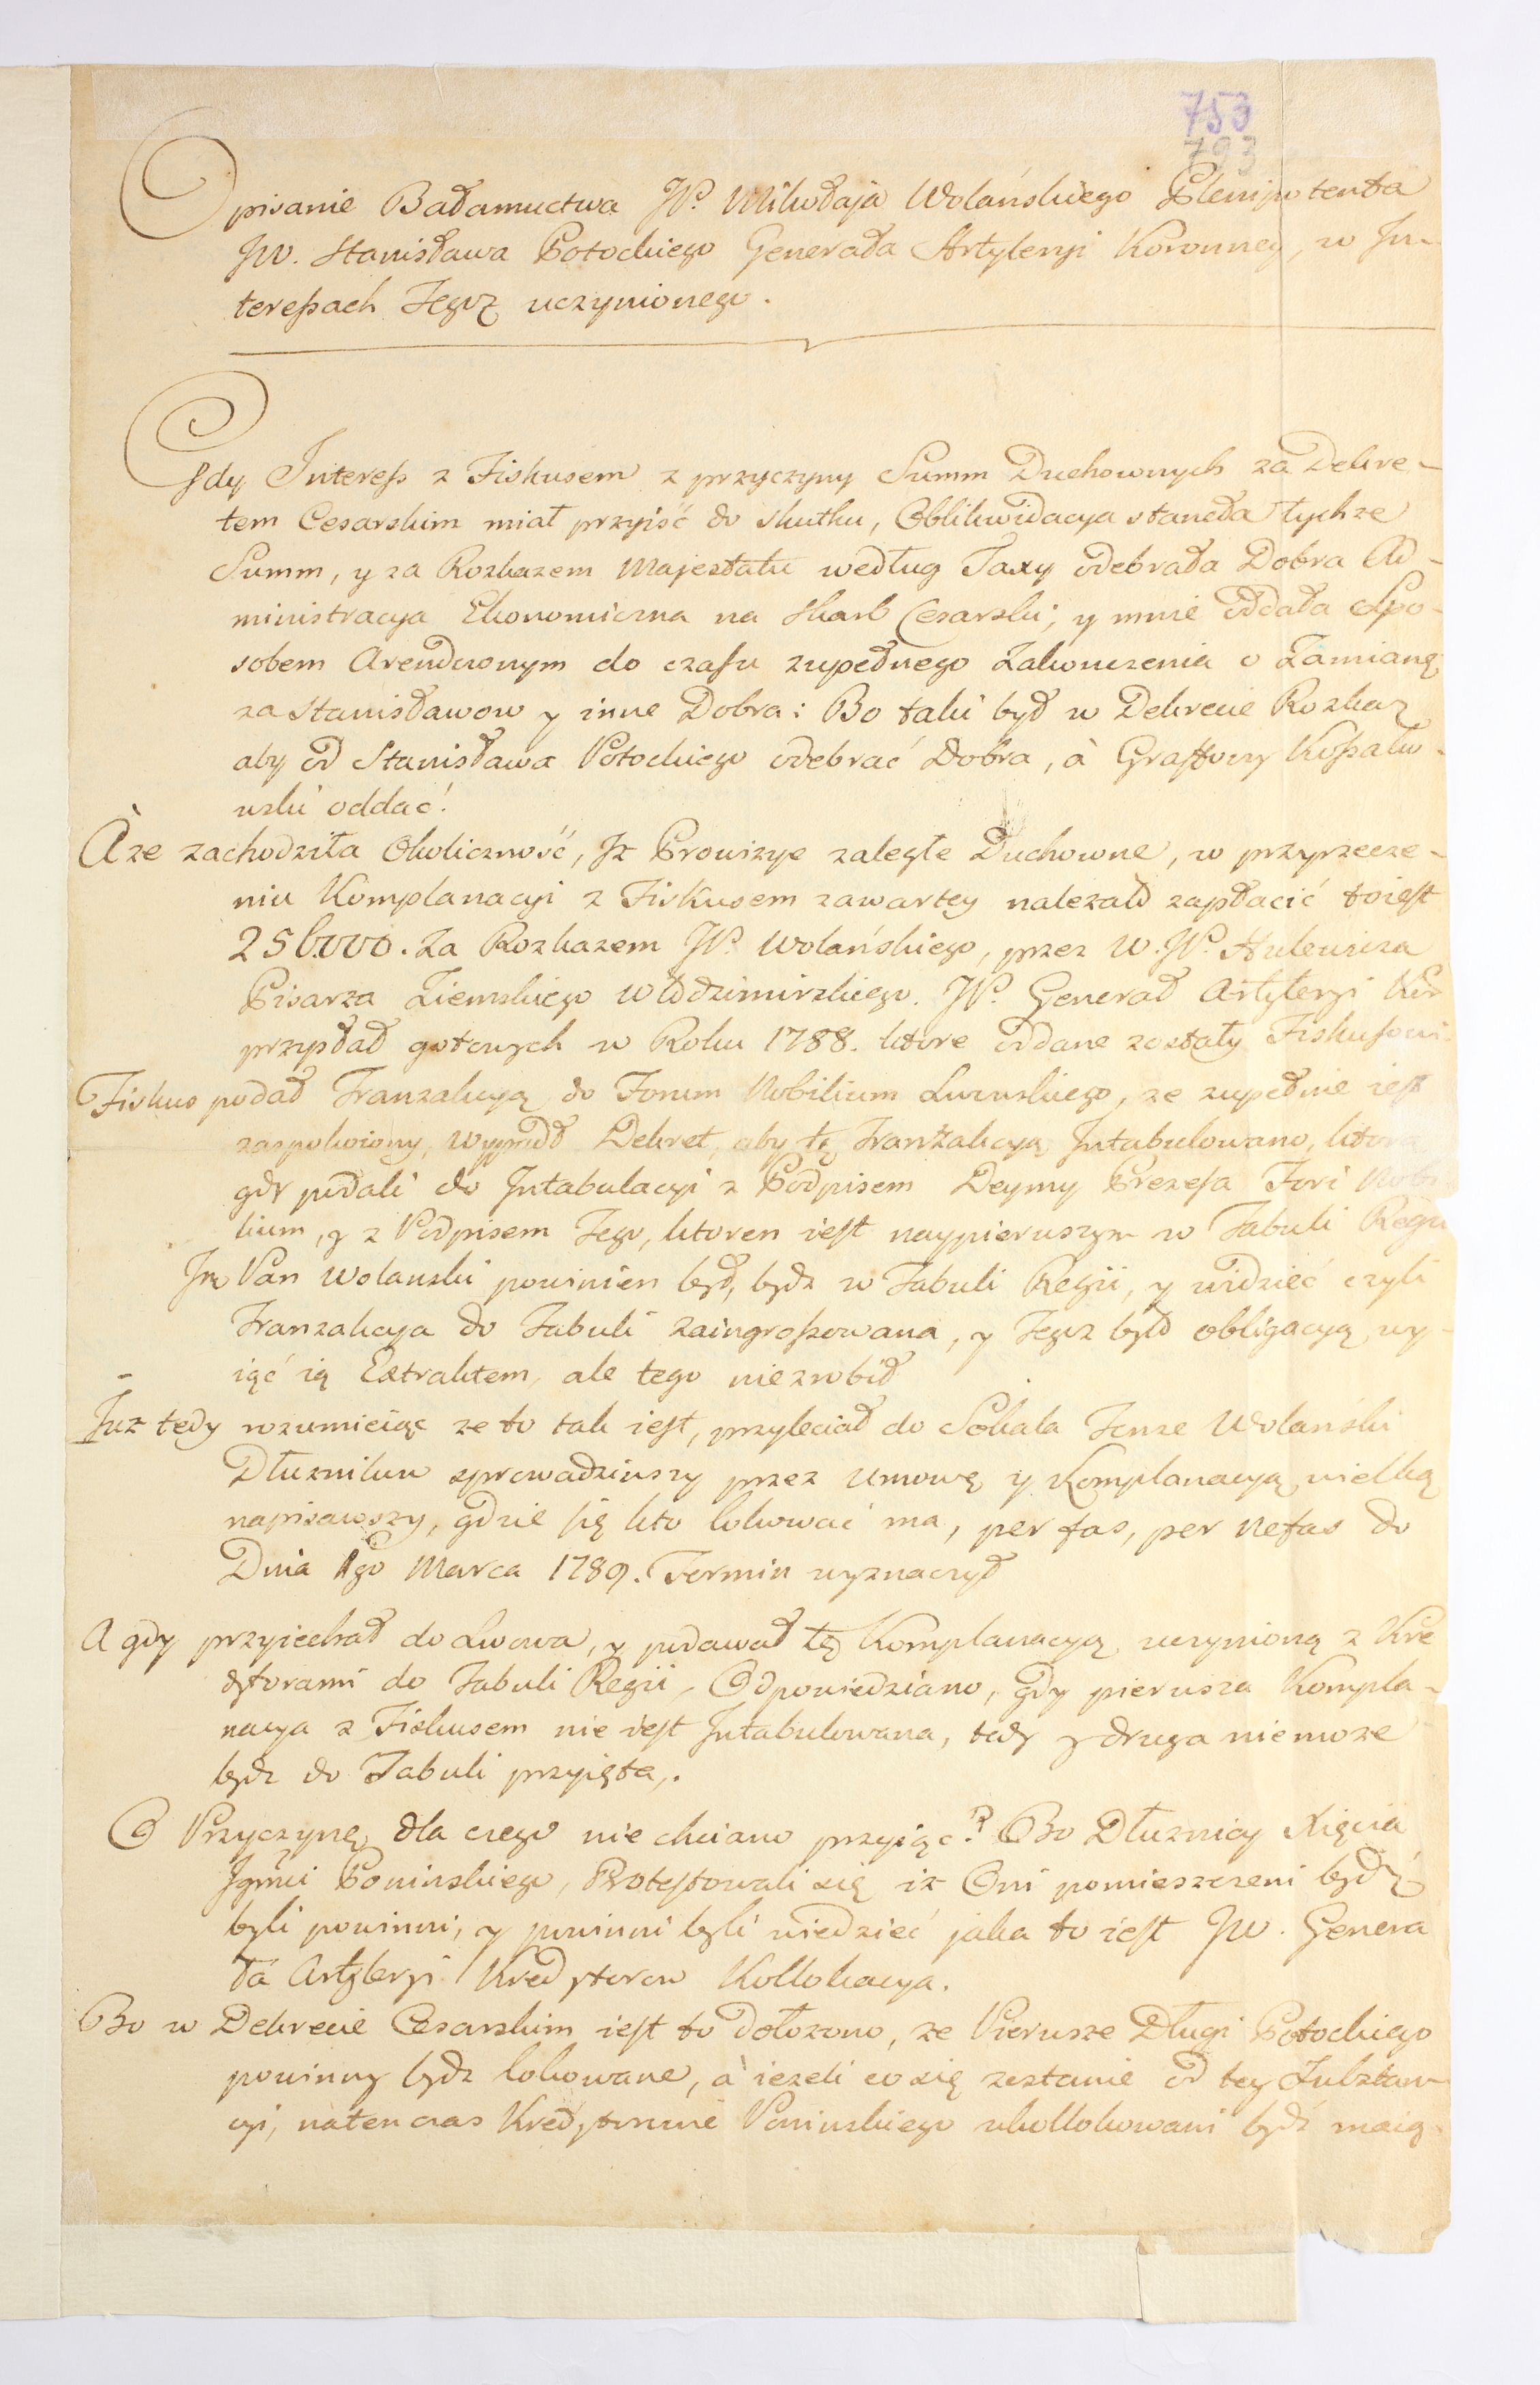 753
793
Opisanie Bałamuctwa JP. Mikołaja Wolańskiego Plenipotenta
JW. Stanisława Potockiego Generała Artyleryi Koronney, w In-
teressach Tegoż uczynionego.
Gdy Interess z Fiskusem z przyczyny Summ Duchownych za Dekre-
tem Cesarskim miał przyiść do skutku, Oblikwidacya staneła tychże
Summ, y za Rozkazem Majestatu według Taxy odebrała Dobra Ad-
ministracya Ekonomiczna na Skarb Cesarski, y mnie oddała Spo-
sobem Arendownym do czasu zupełnego Zakonczenia o Zamianę
za Stanisławow y inne Dobra: Bo taki był w Dekrecie Rozkaz
aby od Stanisława Potockiego odebrać Dobra, à Graffowy Kossakow-
wski oddać!
À że zachodziła Okoliczność, Iż Prowizye zaległe Duchowne, w przyrzecze-
niu Komplanacyi z Fiskusem zawartey należało zapłacić toiest
256.000. Za Rozkazem JP. Wolańskiego, przez W. JP. Hulewicza
Pisarza Ziemskiego Włodzimirskiego. JP. Generał Artyleryi Kor
przysłał gotowych w Roku 1788. ktore oddane zostały Fiskusowi.
Fiskus podał Tranzakcyą do Forum Nobilium Lwowskiego, że zupełnie iest
zaspokoiony, wyszedł Dekret, aby tę Tranzakcyą Intabulowano, ktora
gdy podali do Intabulacyi z Podpisem Deymy Prezesa Fori Nobi
lium, y z Podpisem Tego, ktoren iest naypierwszym w Tabuli Regii
Jm Pan Wolanski powinien był, bydz w Tabuli Regii, y widzieć czyli
Tranzakcya do Tabuli zaingrossowana, y Tegoż było obligacyą wy-
iąć ią Extraktem, ale tego niezrobił
Już tedy rozumieiąc ze to tak iest, przyleciał do Sokala Tenże Wolański
Dłużnikow sprowadziwszy przez Umowę y Komplanacyą wielką
napisawszy, gdzie się kto lokować ma, per fas, per nefas do
Dnia 1go Marca 1789. Termin wyznaczył
A gdy przyiechał do Lwowa, y podawał tę Komplanacyą uczynioną z Kre
dytorami do Tabuli Regii, Odpowiedziano, gdy pierwsza Kompla-
nacya z Fiskusem nie iest Intabulowana, tedy y druga niemoże
bydz do Tabuli przyięta,.
O Przyczynę dla czego nie chciano przyiąc? Bo Dłużnicy Xięcia
Jgmci Poninskiego, Protestowali się iż Oni pomieszczeni bydź
byli powinni, y powinni byli wiedzieć jaka to iest JW. Genera
ła Artyleryi Kredytorow Kollokacya.
Bo w Dekrecie Cesarskim iest to dołożono, ze Pierwsze Długi Potockiego
powinny bydz lokowane, à ieżeli co się zostanie od tey Substan-
cyi, natenczas Kredytorowie Poninskiego ukollokowani bydź maią